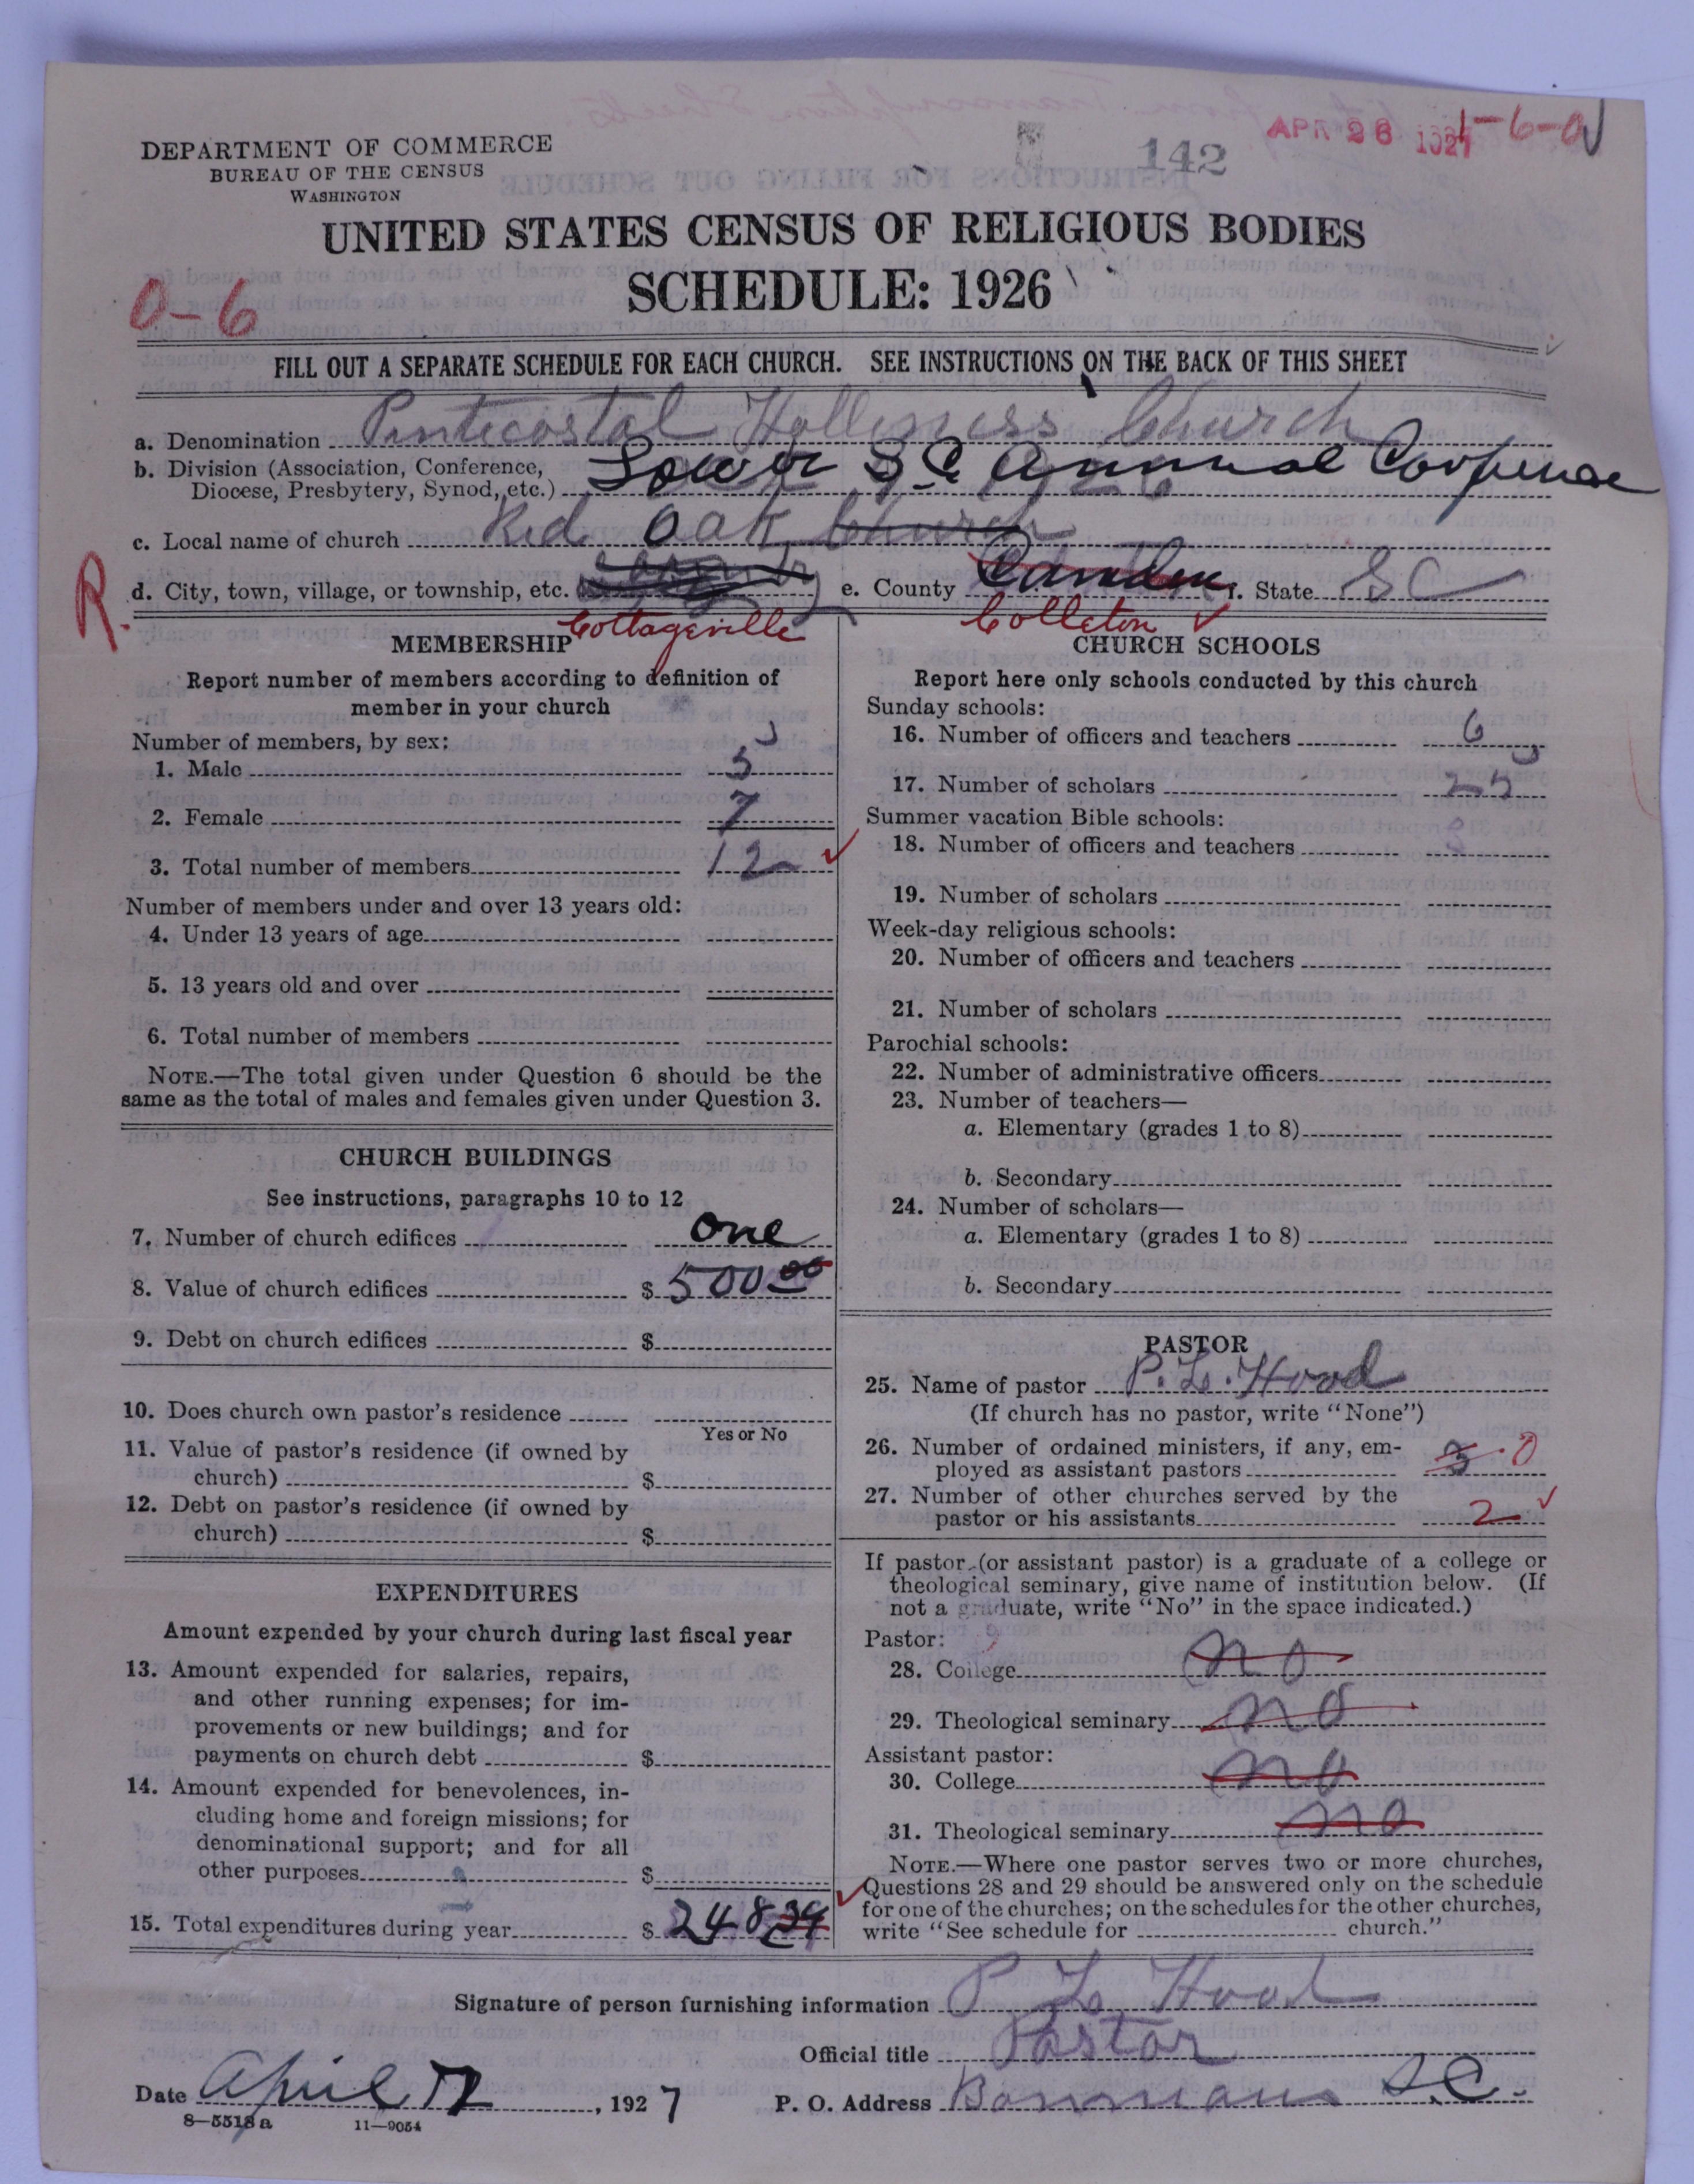 DEPARTMENT OF COMMERCE
BUREAU OF THE CENSUS
WASHINGTON
142
APR 26 1927
1-6-0
UNITED STATES CENSUS OF RELIGIOUS BODIES
SCHEDULE: 1926
0-6
FILL OUT A SEPARATE SCHEDULE FOR EACH CHURCH. SEE INSTRUCTIONS ON THE BACK OF THIS SHEET
a. Denomination Pentecostal Holliness Church
b. Division (Association, Conference, Diocese, Presbytery, Synod, etc.) Lower S.C. Annual
c. Local name of church Red Oak Church
R.
d. City, town, village, or township, etc. Cottageville e. County Camden Colleton f. State SC
MEMBERSHIP
Report number of members according to definition of
member in your church
Number of members, by sex:
1. Male 5
2. Female 7
3. Total number of members 12
Number of members under and over 13 years old:
4. Under 13 years of age
5. 13 years old and over
6. Total number of members
NOTE.—The total given under Question 6 should be the
same as the total of males and females given under Question 3.
CHURCH BUILDINGS
See instructions, paragraphs 10 to 12
7. Number of church edifices one
8. Value of church edifices $ 500.00
9. Debt on church edifices $
10. Does church own pastor's residence
Yes or No
11. Value of pastor's residence (if owned by
church) $
12. Debt on pastor's residence (if owned by
church) $
EXPENDITURES
Amount expended by your church during last fiscal year
13. Amount expended for salaries, repairs,
and other running expenses; for im-
provements or new buildings; and for
payments on church debt $
14. Amount expended for benevolences, in-
cluding home and foreign missions; for
denominational support; and for all
other purposes $
15. Total expenditures during year $ 248.34
CHURCH SCHOOLS
Report here only schools conducted by this church
Sunday schools:
16. Number of officers and teachers 6
17. Number of scholars 25
Summer vacation Bible schools:
18. Number of officers and teachers
19. Number of scholars
Week-day religious schools:
20. Number of officers and teachers
21. Number of scholars
Parochial schools:
22. Number of administrative officers
23. Number of teachers—
a. Elementary (grades 1 to 8)
b. Secondary
24. Number of scholars—
a. Elementary (grades 1 to 8)
b. Secondary
PASTOR
25. Name of pastor P. L. Hood
(If church has no pastor, write "None")
26. Number of ordained ministers, if any, em-
ployed as assistant pastors 3 0
27. Number of other churches served by the
pastor or his assistants 2
If pastor (or assistant pastor) is a graduate of a college or
theological seminary, give name of institution below. (If
not a graduate, write "No" in the space indicated.)
Pastor:
28. College no
29. Theological seminary no
Assistant pastor:
30. College no
31. Theological seminary no
NOTE.—Where one pastor serves two or more churches,
Questions 28 and 29 should be answered only on the schedule
for one of the churches; on the schedules for the other churches,
write "See schedule for church."
Signature of person furnishing information P L Hood
Official title Pastor
Date April 12, 1927 P. O. Address Bowman S.C.
8-5518a 11-9054